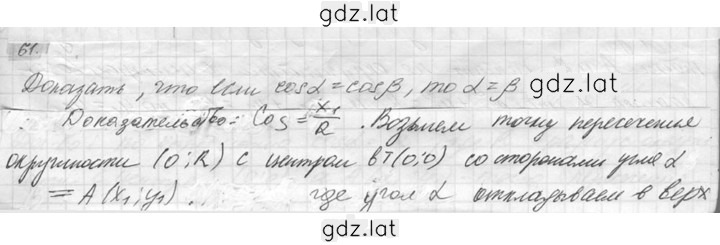 gdz.lat
61.
Доказать, что если cosα = cosβ, то α = β
Доказательство: Cos = x₁/R. Возьмем точку пересечения
окружности (O; R) с центром в т(0; 0) со сторонами угла α
= A(x₁; y₁). где угол α откладываем в верх
gdz.lat